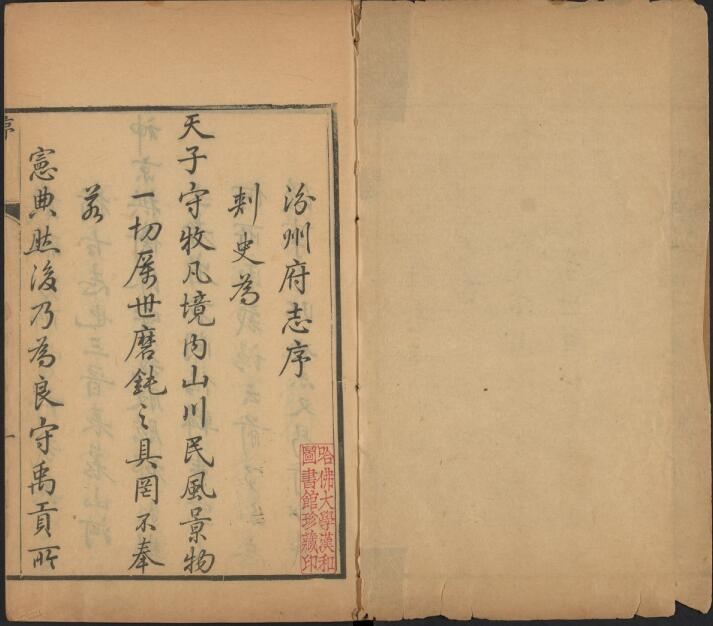 汾州府志序
刺史為
天子守牧凡境內山川民風景物
一切厲世磨鈍之具罔不奉
若
憲典然後乃為良守禹貢所
哈佛大學漢和
圖書館珍藏印
序
一